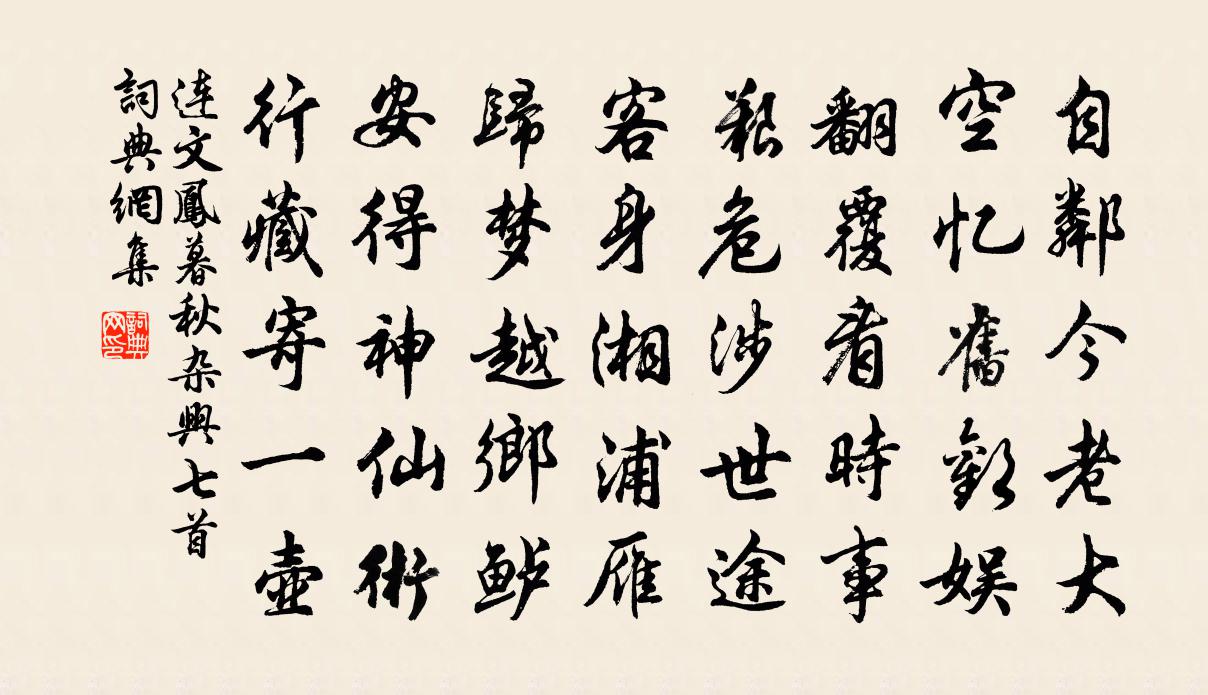 自鄰今老大
空忆舊歡娱
翻覆看時事
艱危涉世途
客身湘浦雁
歸梦越鄉鲈
安得神仙術
行藏寄一壺
連文鳳暮秋杂興七首
詞典網集
詞典网印